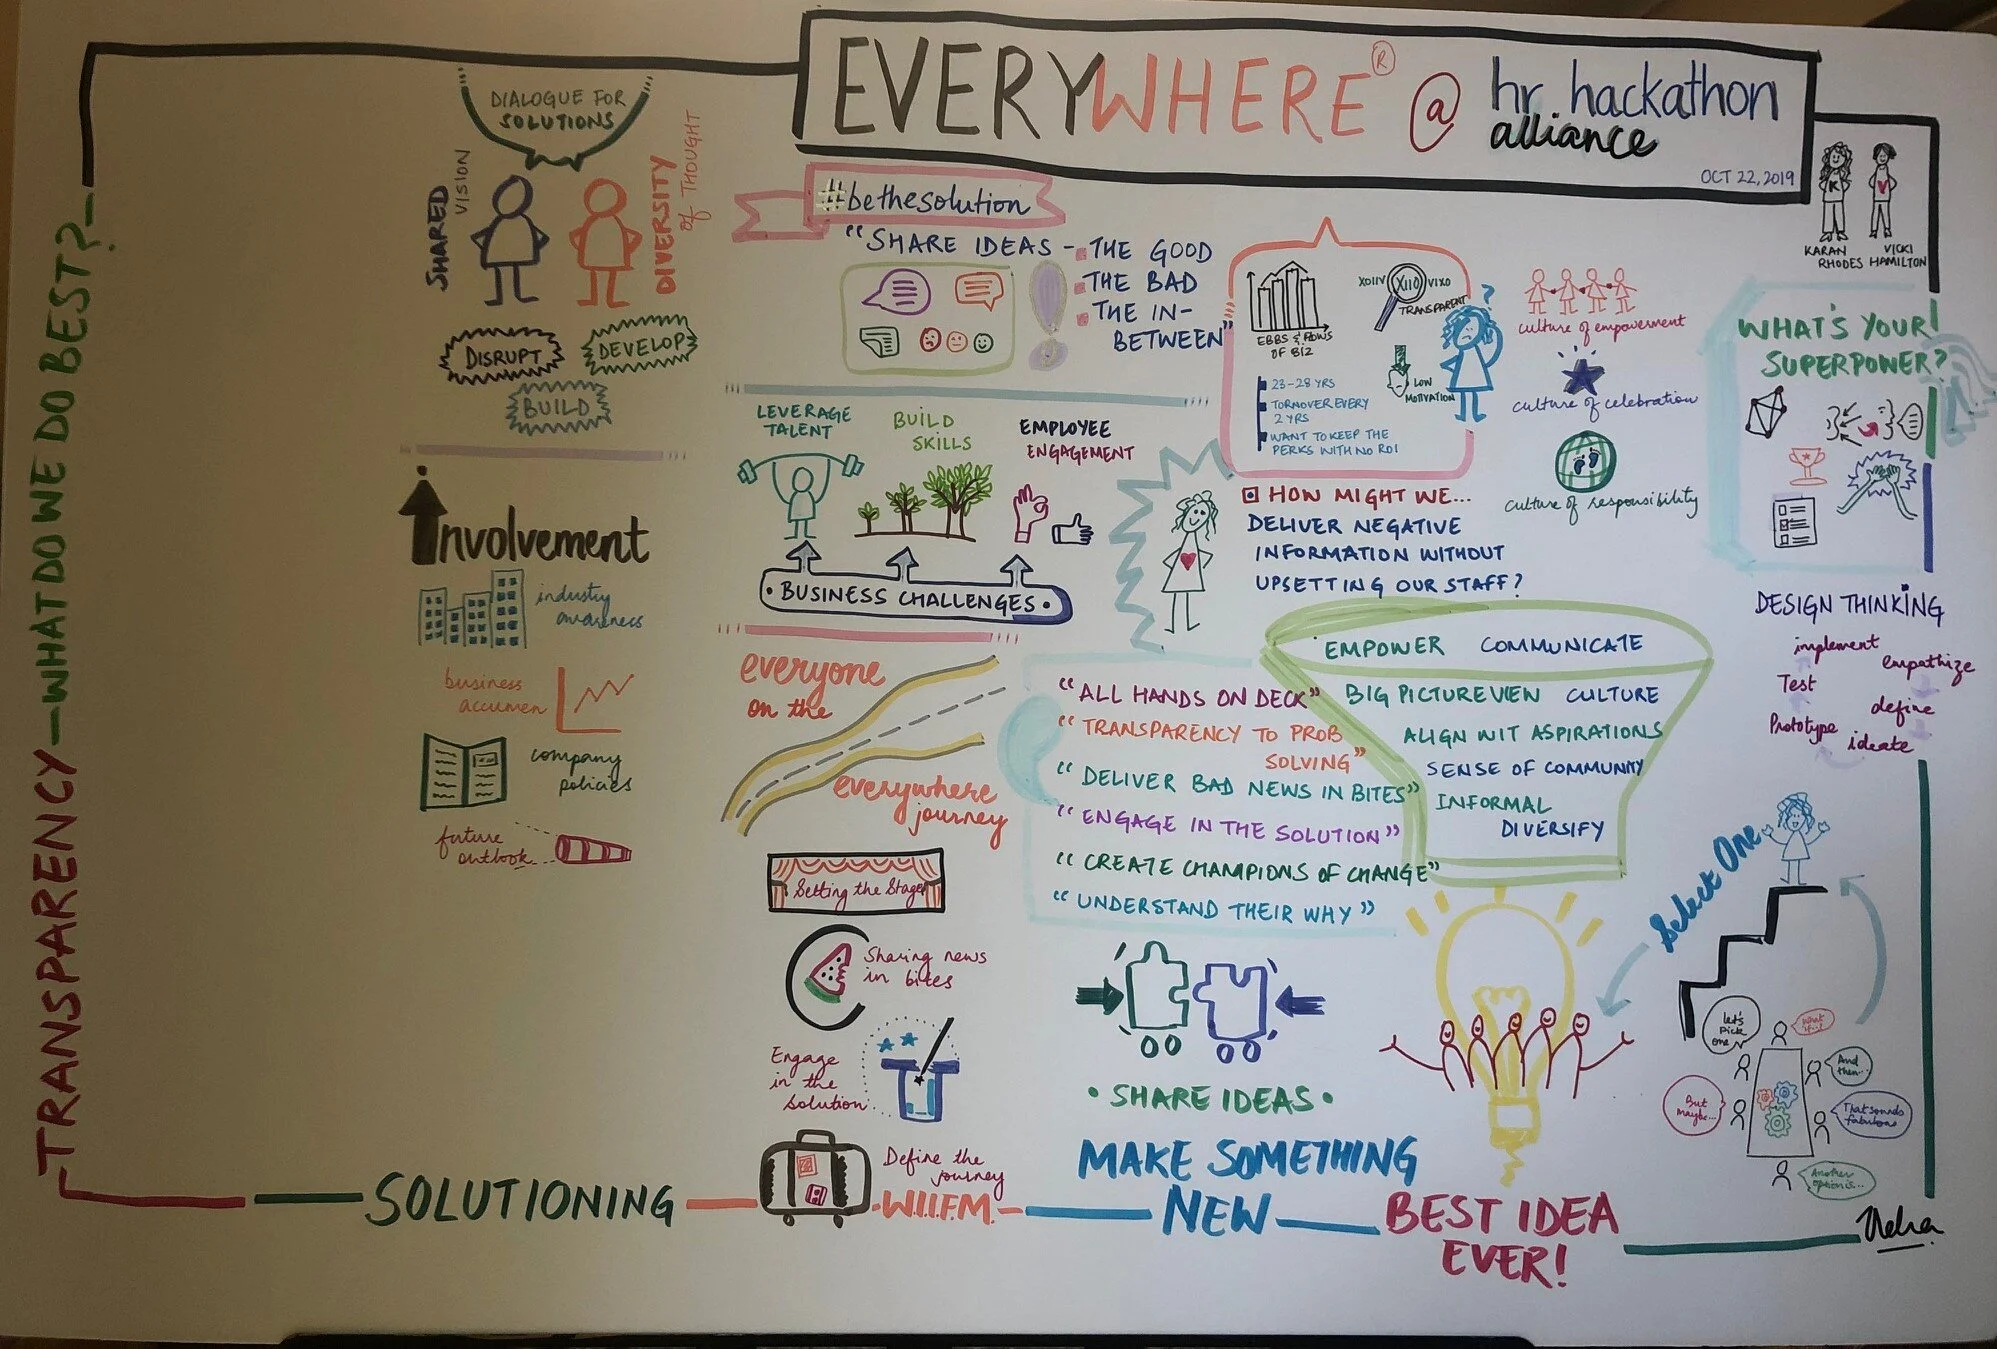 EVERYWHERE ® @ hr hackathon
alliance
OCT 22, 2019
KARAN
RHODES
VICKI
HAMILTON
TRANSPARENCY — WHAT DO WE DO BEST? —
DIALOGUE FOR
SOLUTIONS
SHARED
VISION
DIVERSITY
of THOUGHT
DISRUPT
DEVELOP
BUILD
Involvement
industry
awareness
business
accumen
company
policies
future
outlook
#bethesolution
"SHARE IDEAS - THE GOOD
THE BAD
THE IN-
BETWEEN"
LEVERAGE
TALENT
BUILD
SKILLS
EMPLOYEE
ENGAGEMENT
BUSINESS CHALLENGES
everyone
on the
everywhere
journey
Setting the Stage
Sharing news
in bites
Engage
in the
solution
Define the
journey
EBBS & FLOWS
OF BIZ
XOIIV XIIO VIXO
TRANSPARENT
?
LOW
MOTIVATION
23-28 YRS
TORNOVER EVERY
2 YRS
WANT TO KEEP THE
PERKS WITH NO ROI
culture of empowerment
culture of celebration
culture of responsibility
HOW MIGHT WE...
DELIVER NEGATIVE
INFORMATION WITHOUT
UPSETTING OUR STAFF?
"ALL HANDS ON DECK"
"TRANSPARENCY TO PROB
SOLVING"
"DELIVER BAD NEWS IN BITES"
"ENGAGE IN THE SOLUTION"
"CREATE CHAMPIONS OF CHANGE"
"UNDERSTAND THEIR WHY"
EMPOWER COMMUNICATE
BIG PICTURE VIEW CULTURE
ALIGN WIT ASPIRATIONS
SENSE OF COMMUNITY
INFORMAL
DIVERSIFY
WHAT'S YOUR
SUPERPOWER?
DESIGN THINKING
implement
empathize
Test
define
Prototype
ideate
Select One
let's
pick
one
what
if..!
And
then...
But
maybe...
That sounds
fabulous
Another
option is...
• SHARE IDEAS •
SOLUTIONING
W.I.I.F.M.
MAKE SOMETHING
NEW
BEST IDEA
EVER!
Neha